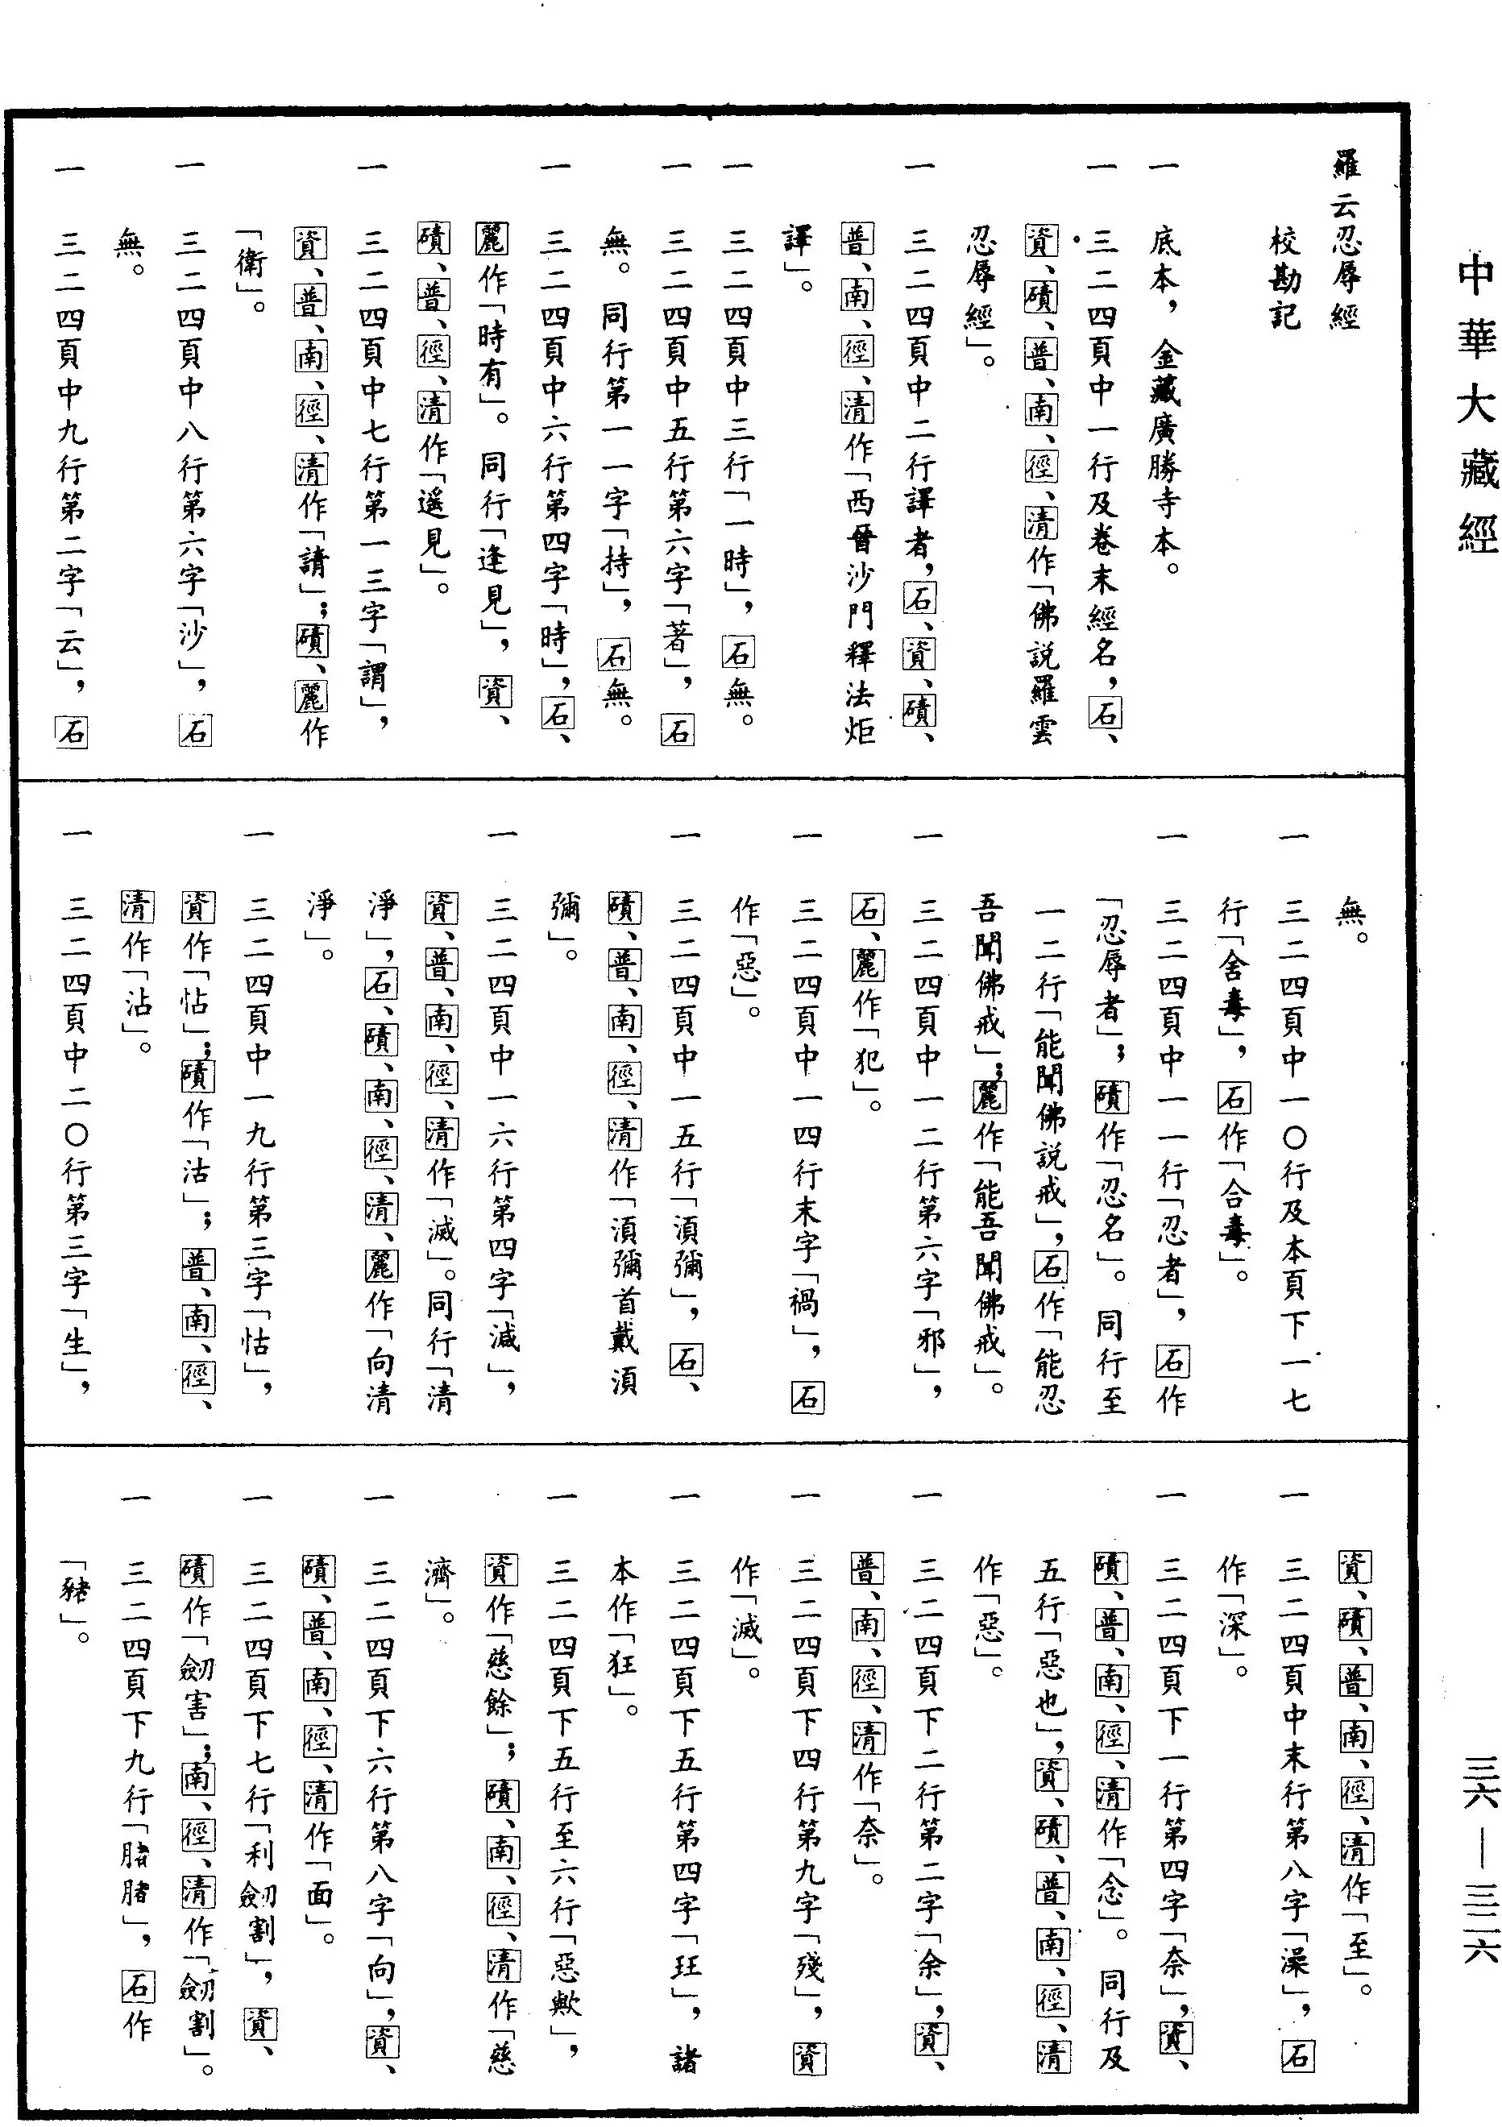 中華大藏經
羅云忍辱經
校勘記
一　底本，金藏廣勝寺本。
一　三二四頁中一行及卷末經名，石、
資、磧、普、南、徑、清作「佛說羅雲
忍辱經」。
一　三二四頁中二行譯者，石、資、磧、
普、南、徑、清作「西晉沙門釋法炬
譯」。
一　三二四頁中三行「一時」，石無。
一　三二四頁中五行第六字「著」，石
無。同行第一一字「持」，石無。
一　三二四頁中六行第四字「時」，石、
麗作「時有」。同行「逢見」，資、
磧、普、徑、清作「遥見」。
一　三二四頁中七行第一三字「謂」，
資、普、南、徑、清作「請」；磧、麗作
「衛」。
一　三二四頁中八行第六字「沙」，石
無。
一　三二四頁中九行第二字「云」，石
無。
一　三二四頁中一〇行及本頁下一七
行「舍毒」，石作「合毒」。
一　三二四頁中一一行「忍者」，石作
「忍辱者」；磧作「忍名」。同行至
一二行「能聞佛說戒」，石作「能忍
吾聞佛戒」；麗作「能吾聞佛戒」。
一　三二四頁中一二行第六字「邪」，
石、麗作「犯」。
一　三二四頁中一四行末字「禍」，石
作「惡」。
一　三二四頁中一五行「須彌」，石、
磧、普、南、徑、清作「須彌首戴須
彌」。
一　三二四頁中一六行第四字「減」，
資、普、南、徑、清作「滅」。同行「清
淨」，石、磧、南、徑、清、麗作「向清
淨」。
一　三二四頁中一九行第三字「怙」，
資作「怗」；磧作「沽」；普、南、徑、
清作「沾」。
一　三二四頁中二〇行第三字「生」，
資、磧、普、南、徑、清作「至」。
一　三二四頁中末行第八字「澡」，石
作「深」。
一　三二四頁下一行第四字「奈」，資、
磧、普、南、徑、清作「念」。同行及
五行「惡也」，資、磧、普、南、徑、清
作「惡」。
一　三二四頁下二行第二字「余」，資、
普、南、徑、清作「奈」。
一　三二四頁下四行第九字「殘」，資
作「滅」。
一　三二四頁下五行第四字「玨」，諸
本作「狂」。
一　三二四頁下五行至六行「惡歟」，
資作「慈餘」；磧、南、徑、清作「慈
濟」。
一　三二四頁下六行第八字「向」，資、
磧、普、南、徑、清作「面」。
一　三二四頁下七行「利劒割」，資、
磧作「劒害」；南、徑、清作「劒割」。
一　三二四頁下九行「賭賭」，石作
「豬」。
三六—三二六